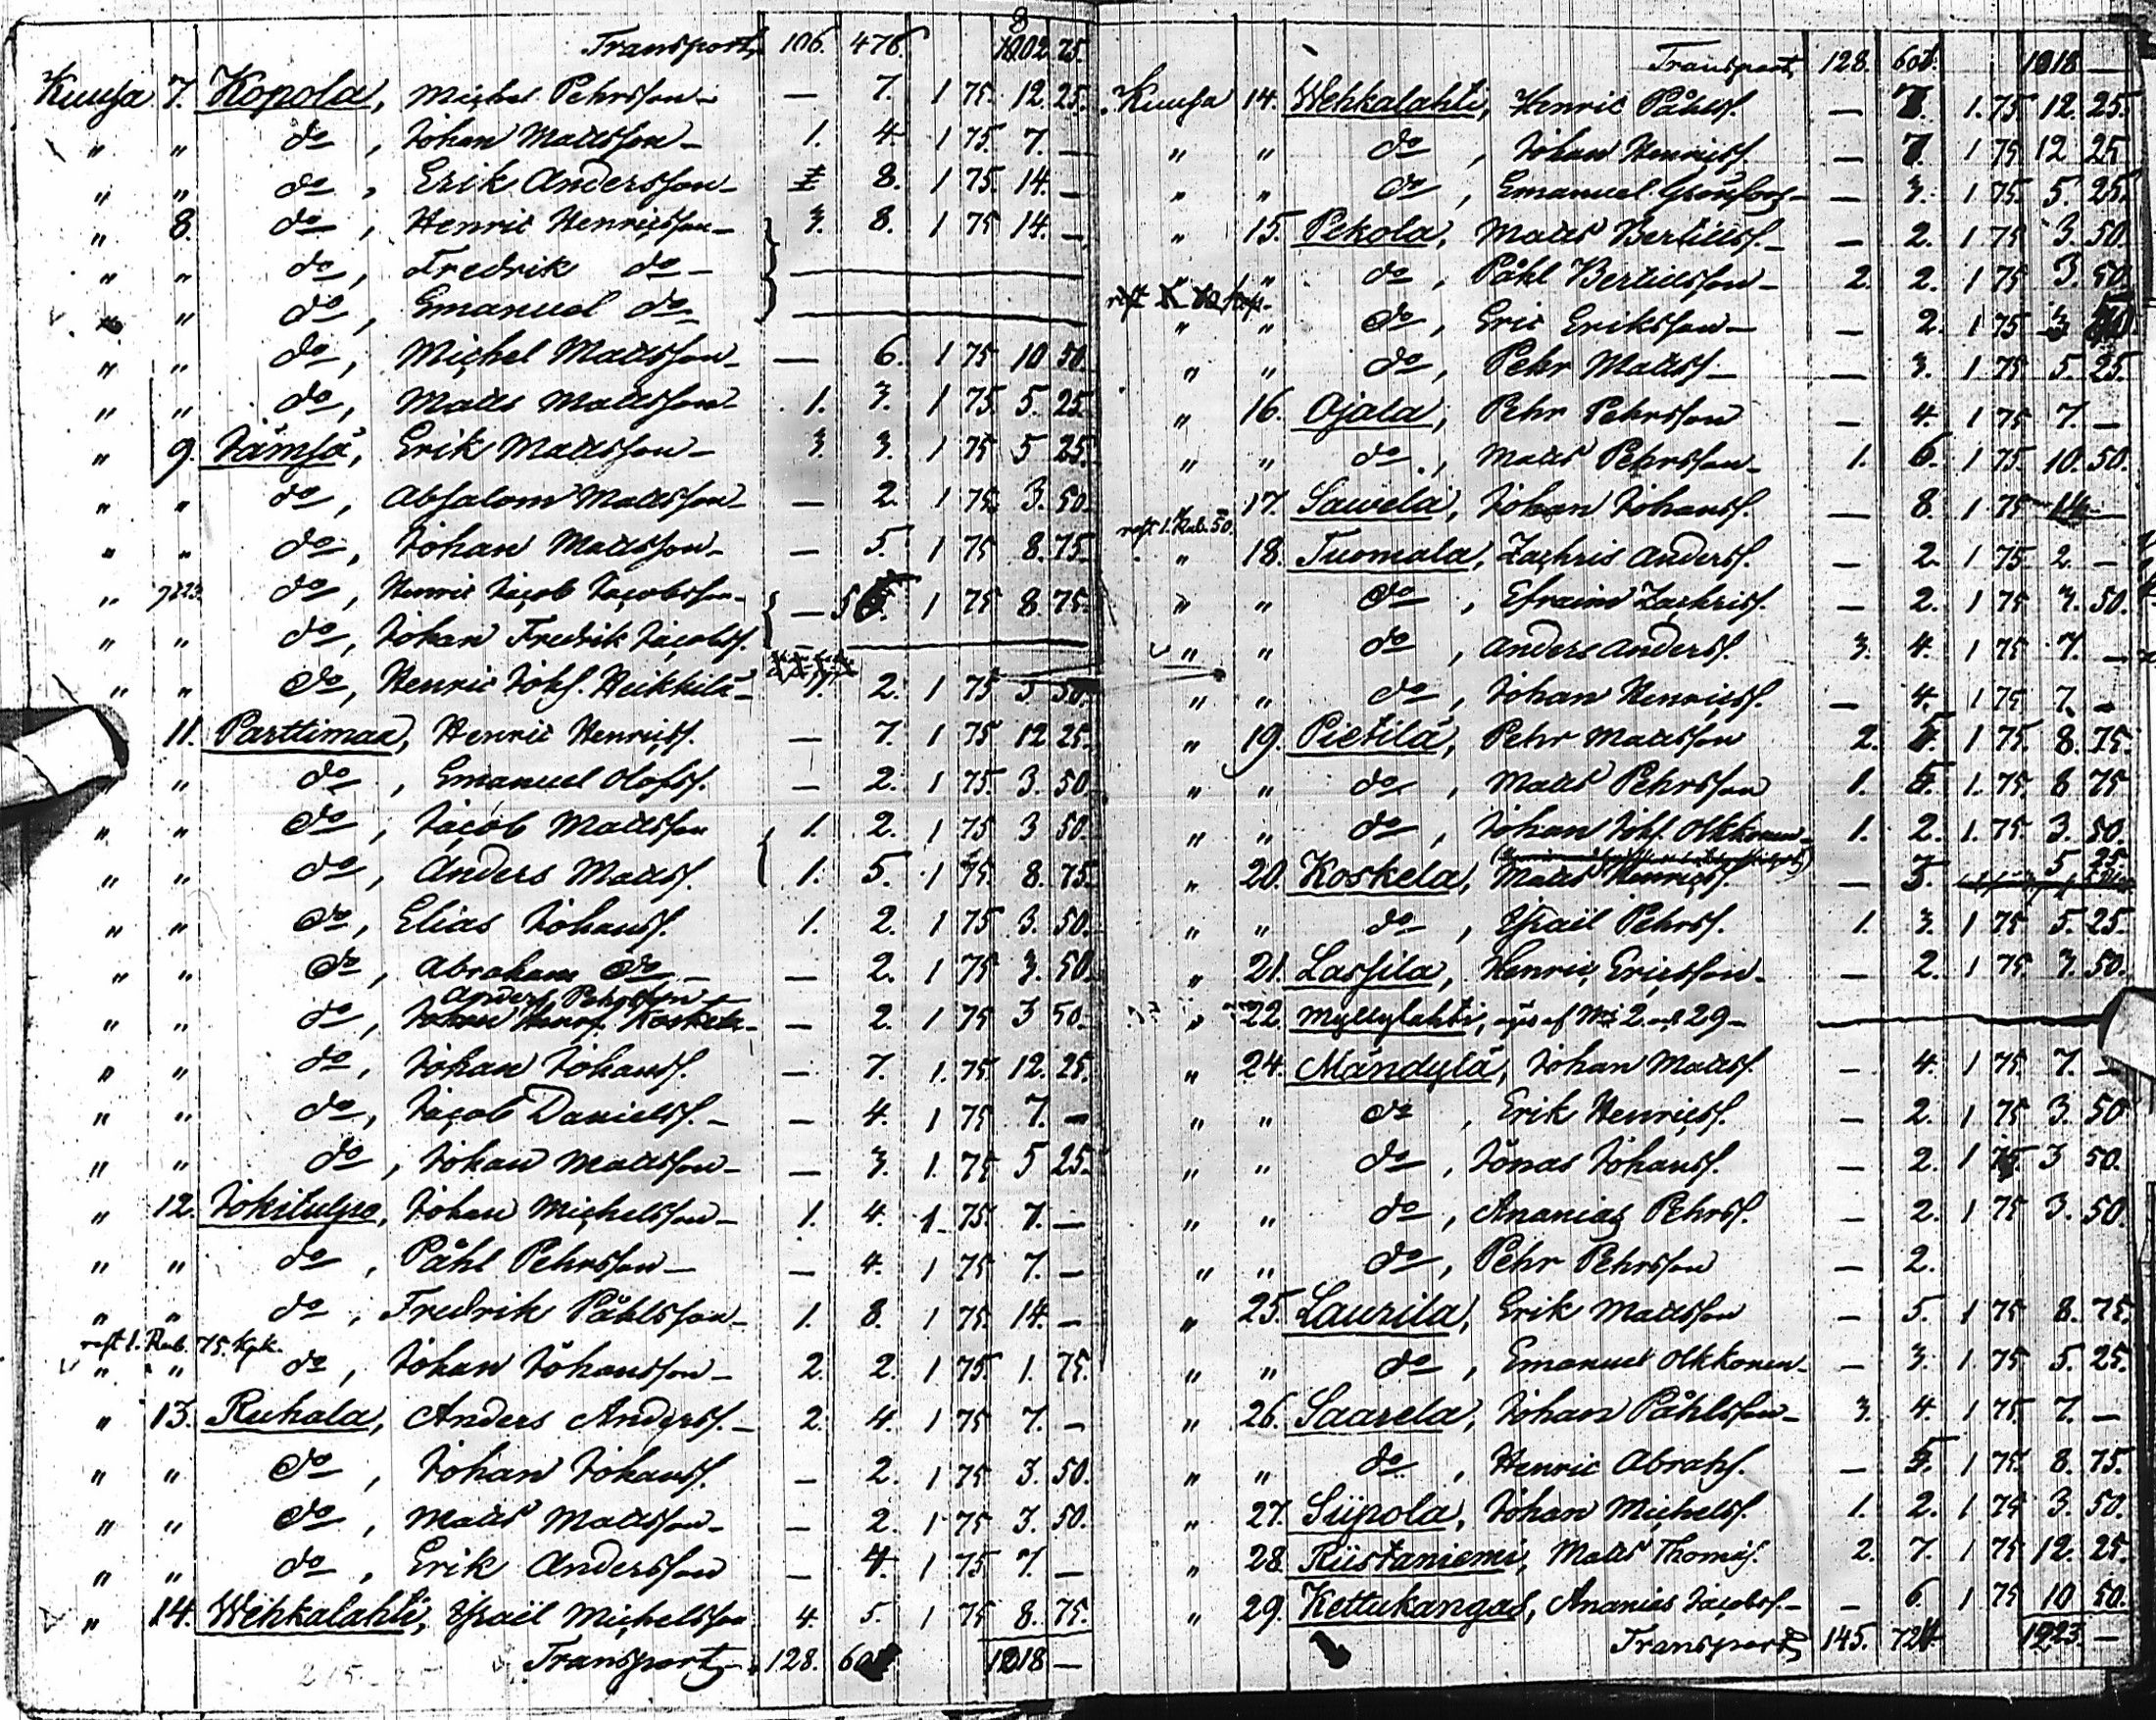 Transport 106. 476. 802 75.
Kuusa 7. Kopola, Michel Pehrsson — 7. 1 75. 12. 25.
" " do, Johan Mattsson — 1. 4. 1 75. 7. —
" " do, Erik Andersson — 8. 1 75. 14. —
" 8. do, Henric Henricsson — 3. 8. 1 75 14. —
" " do, Fredrik do —
" " do, Emanuel do
" " do, Michel Mattsson — 6. 1 75 10 50.
" " do, Matts Mattsson 1. 3. 1 75. 5. 25.
" 9. Jämsä, Erik Mattsson — 3. 3. 1 75 5 25.
" " do, Absalom Mattsson — 2. 1 75. 3. 50.
" " do, Johan Mattsson — 5. 1 75 8. 75.
" do, Henric Jacob Jacobsson — 5 1 75 8. 75.
" " do, Johan Fredrik Jacobss. —
" " do, Henric Johs. Heikkilä 2. 1 75 3 50.
11. Parttimaa, Henric Henricss. — 7. 1 75 12 25.
" " do, Emanuel Olofss. — 2. 1 75. 3. 50.
" " do, Jacob Mattsson 1. 2. 1 75 3 50.
" " do, Anders Mattss. 1. 5. 1 75. 8. 75.
" " do, Elias Johanss. 1. 2. 1 75 3. 50.
" " do, Abraham do — 2. 1 75 3. 50.
Anders Pehrsson
" " do, Johan Koskela — 2. 1 75 3 50.
" " do, Johan Johanss. — 7. 1. 75 12. 25.
" " do, Jacob Danielss. — 4. 1 75 7. —
" " do, Johan Mattsson — 3. 1. 75 5 25.
" 12. Jokitulpo, Johan Michelsson — 1. 4. 1 75. 7. —
" " do, Påhl Pehrsson — 4. 1 75 7. —
" " do, Fredrik Påhlsson 1. 8. 1 75. 14. —
rest 1. Rub. 75. kpk.
" " do, Johan Johansson — 2. 2. 1 75. 1. 75.
" 13. Ruhala, Anders Anderss. — 2. 4. 1 75 7. —
" " do, Johan Johanss. — 2. 1 75 3. 50.
" " do, Matts Mattsson — 2. 1 75 3. 50.
" " do, Erik Andersson — 4. 1 75 7. —
" 14. Wehkalahti, Ysraël Michelsson 4. 5. 1 75 8. 75.
Transport 128. 1018 —
Transport 128. 601. 1018 —
Kuusa 14. Wehkalahti, Henric Påhlss. — 7. 1. 75. 12. 25.
" " do, Johan Henricss. — 7. 1 75 12 25
" " do, Emanuel — 3. 1 75. 5. 25.
" 15. Pekola, Matts Bertilss. — 2. 1 75 3. 50.
" do, Påhl Bertilsson — 2. 2. 1 75 3. 50.
" " do, Eric Eriksson — 2. 1 75 3
" " do, Pehr Mattss. — 3. 1. 75 5. 25.
" 16. Ojala, Pehr Pehrsson — 4. 1 75 7. —
" " do, Matts Pehrsson — 1. 6. 1 75. 10. 50.
17. Sawela, Johan Johanss. — 8. 1 75 14 —
rest 1. Rub. 50.
" 18. Tuomala, Zachris Anderss. — 2. 1 75. 2. —
" " do, Efraim Zachriss. — 2. 1 75 3. 50.
" " do, Anders Anderss. 3. 4. 1 75 7. —
" " do, Johan Henricss. — 4. 1 75 7. —
" 19. Pietilä, Pehr Mattsson 2. 5. 1 75. 8. 75.
" " do, Matts Pehrsson 1. 5. 1. 75. 8 75
" " do, Johan Johs. Olkkonen 1. 2. 1. 75 3. 50.
" 20. Koskela, Matts Henricss. — 3. 5 25
" " do, Ysraël Pehrss. 1. 3. 1 75 5. 25.
" 21. Lassila, Henric Ericsson — 2. 1 75 3. 50.
" 22. Myllylahti, äges af No 2 och 29 —
" 24. Mändylä, Johan Mattss. — 4. 1 75. 7. —
" " do, Erik Henricss. — 2. 1 75 3. 50
" " do, Jonas Johanss. — 2. 1 75. 3 50.
" " do, Ananias Pehrss. — 2. 1 75 3. 50.
" " do, Pehr Pehrsson — 2.
" 25. Laurila, Erik Mattsson — 5. 1 75 8. 75.
" " do, Emanuel Olkkonen — 3. 1. 75 5. 25.
" 26. Saarela, Johan Påhlsson — 3. 4. 1 75. 7. —
" " do, Henric Abrahs. — 5. 1 75. 8. 75.
" 27. Siipola, Johan Michelss. 1. 2. 1 75 3. 50.
" 28 Riistaniemi, Matts Thomss. 2. 7. 1 75 12. 25.
" 29. Kettukangas, Ananias Jacobss. — 6. 1 75 10 50.
Transport 145. 724 1223. —